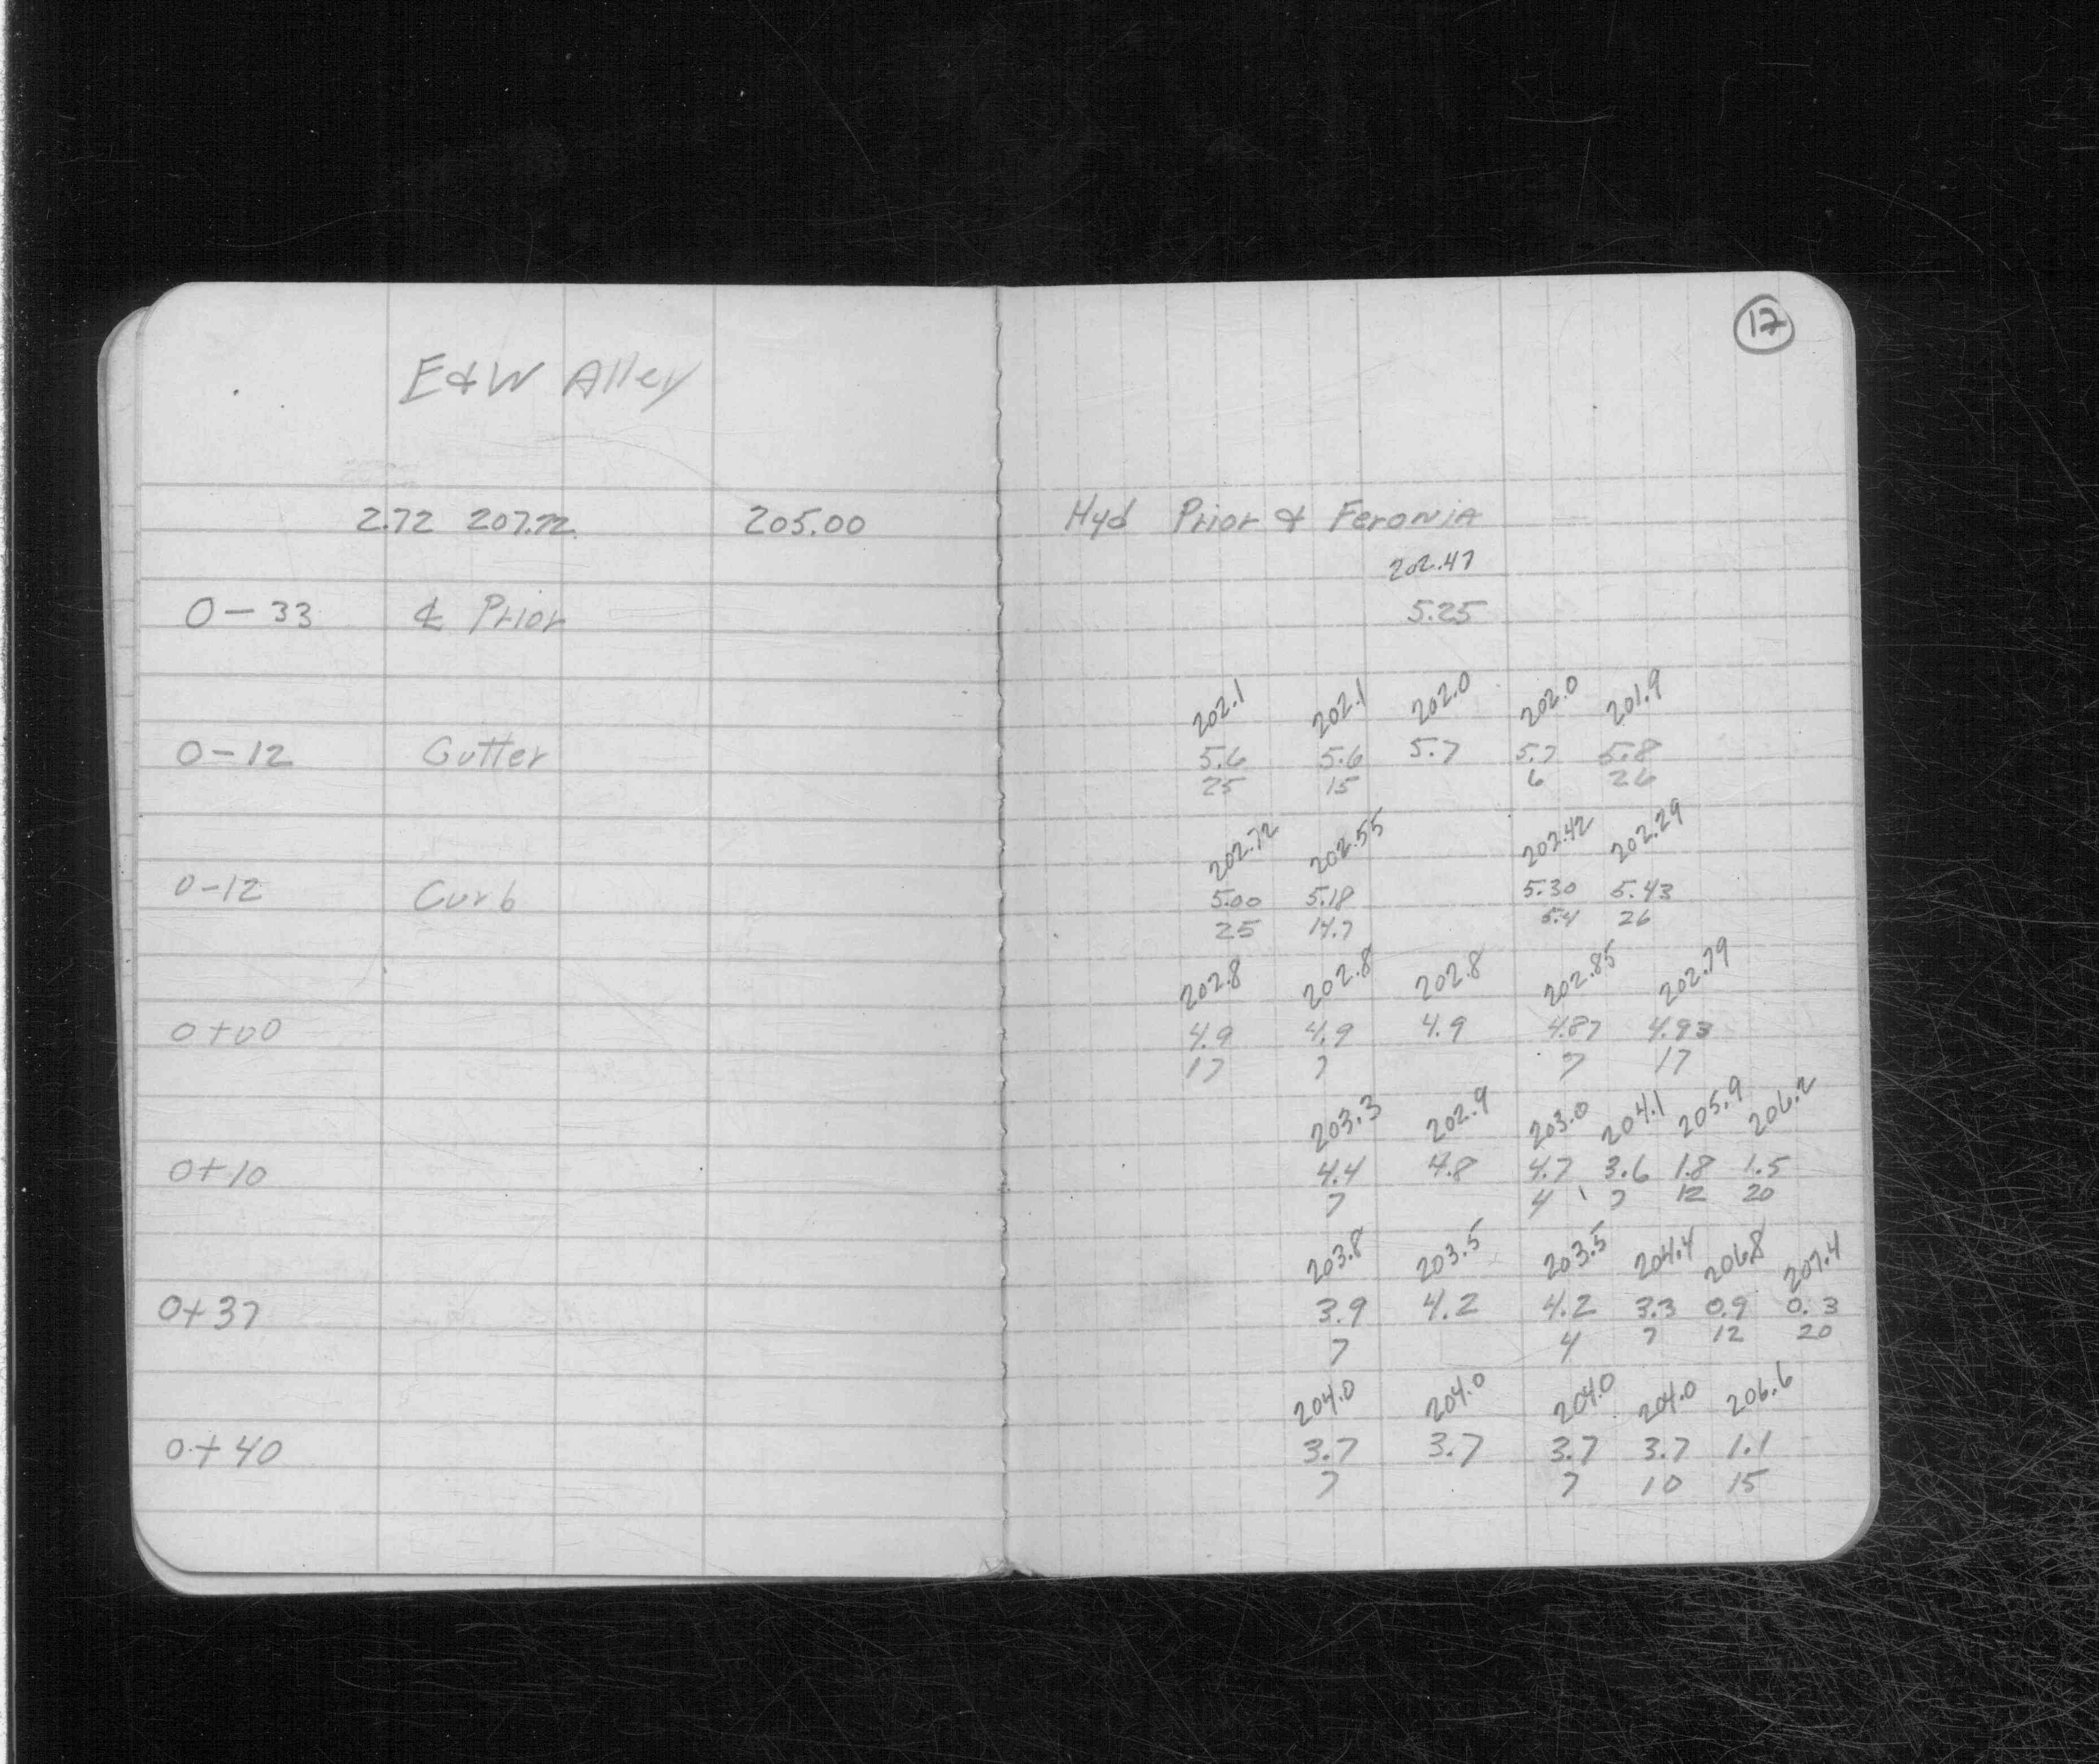 17
E & W Alley
2.72 207.72 205.00 Hyd Prior & Feronia
202.47
0-33 ℄ Prior 5.25
202.1 202.1 202.0 202.0 201.9
0-12 Gutter 5.6 5.6 5.7 5.7 5.8
25 15 6 26
202.72 202.55 202.42 202.29
0-12 Curb 5.00 5.18 5.30 5.43
25 14.7 5.4 26
202.8 202.8 202.8 202.85 202.79
0+00 4.9 4.9 4.9 4.87 4.93
17 7 7 17
203.3 202.9 203.0 204.1 205.9 206.2
0+10 4.4 4.8 4.7 3.6 1.8 1.5
7 4 7 12 20
203.8 203.5 203.5 204.4 206.8 207.4
0+37 3.9 4.2 4.2 3.3 0.9 0.3
7 4 7 12 20
204.0 204.0 204.0 204.0 206.6
0+40 3.7 3.7 3.7 3.7 1.1
7 7 10 15